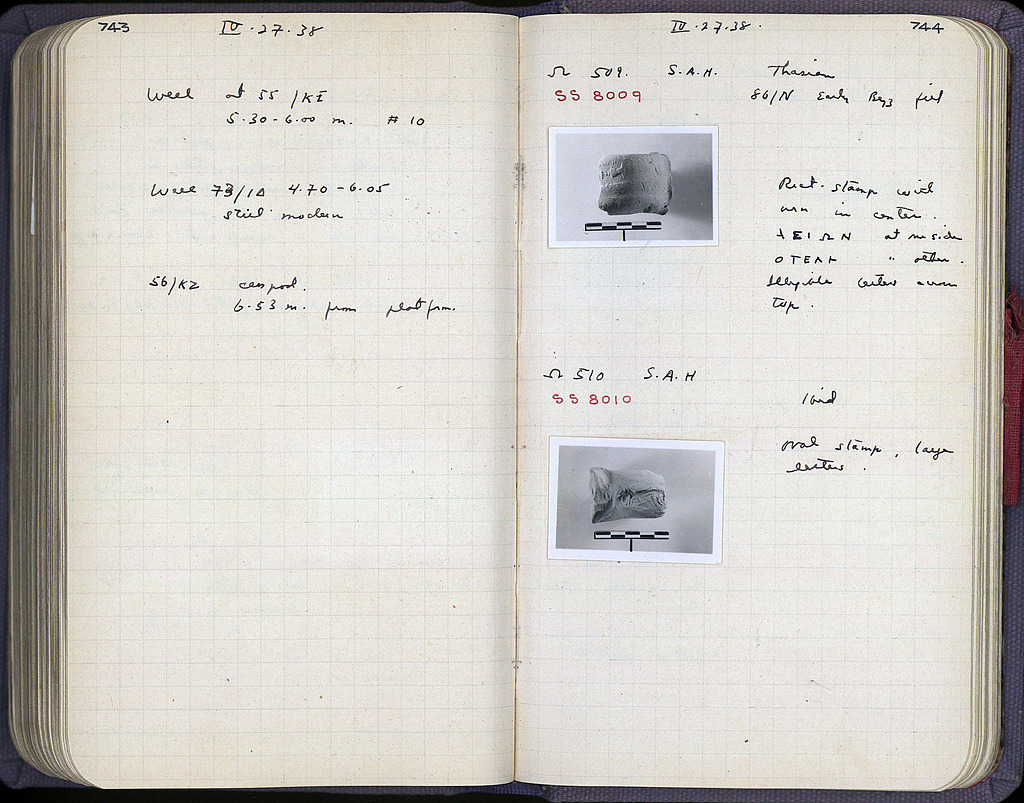 743
IV · 27 · 38
Well at 55 / ΚΙ
5.30 - 6.00 m. # 10
Well 73/ΙΔ 4.70 - 6.05
still modern
56/ΚΖ cesspool.
6.53 m. from platform.
IV · 27 · 38 ·
744
Ω 509. S.A.H. Thasian
SS 8009 86/Ν Early Byz fill
Rect. stamp with
urn in center.
ΕΙΩΝ at one side
ΟΤΕΛΗ " other.
Illegible letters across
top.
Ω 510 S.A.H
SS 8010 Ibid
oval stamp, large
letters.